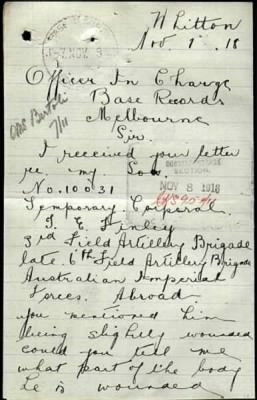 Whitton
Nov. 1. 18
Officer In Charge
Base Records
Melbourne
Sir.
I received your letter
re my Son.
NOV 8 1918
No. 10031
Temporary Corporal.
T. E. Finley
3rd Field Artillery Brigade
late. 6th Field Artillery Brigade
Australian Imperial
Forces. Abroad.
you mentioned him
being slightly wounded
could you tell me
what part of the body
he is wounded